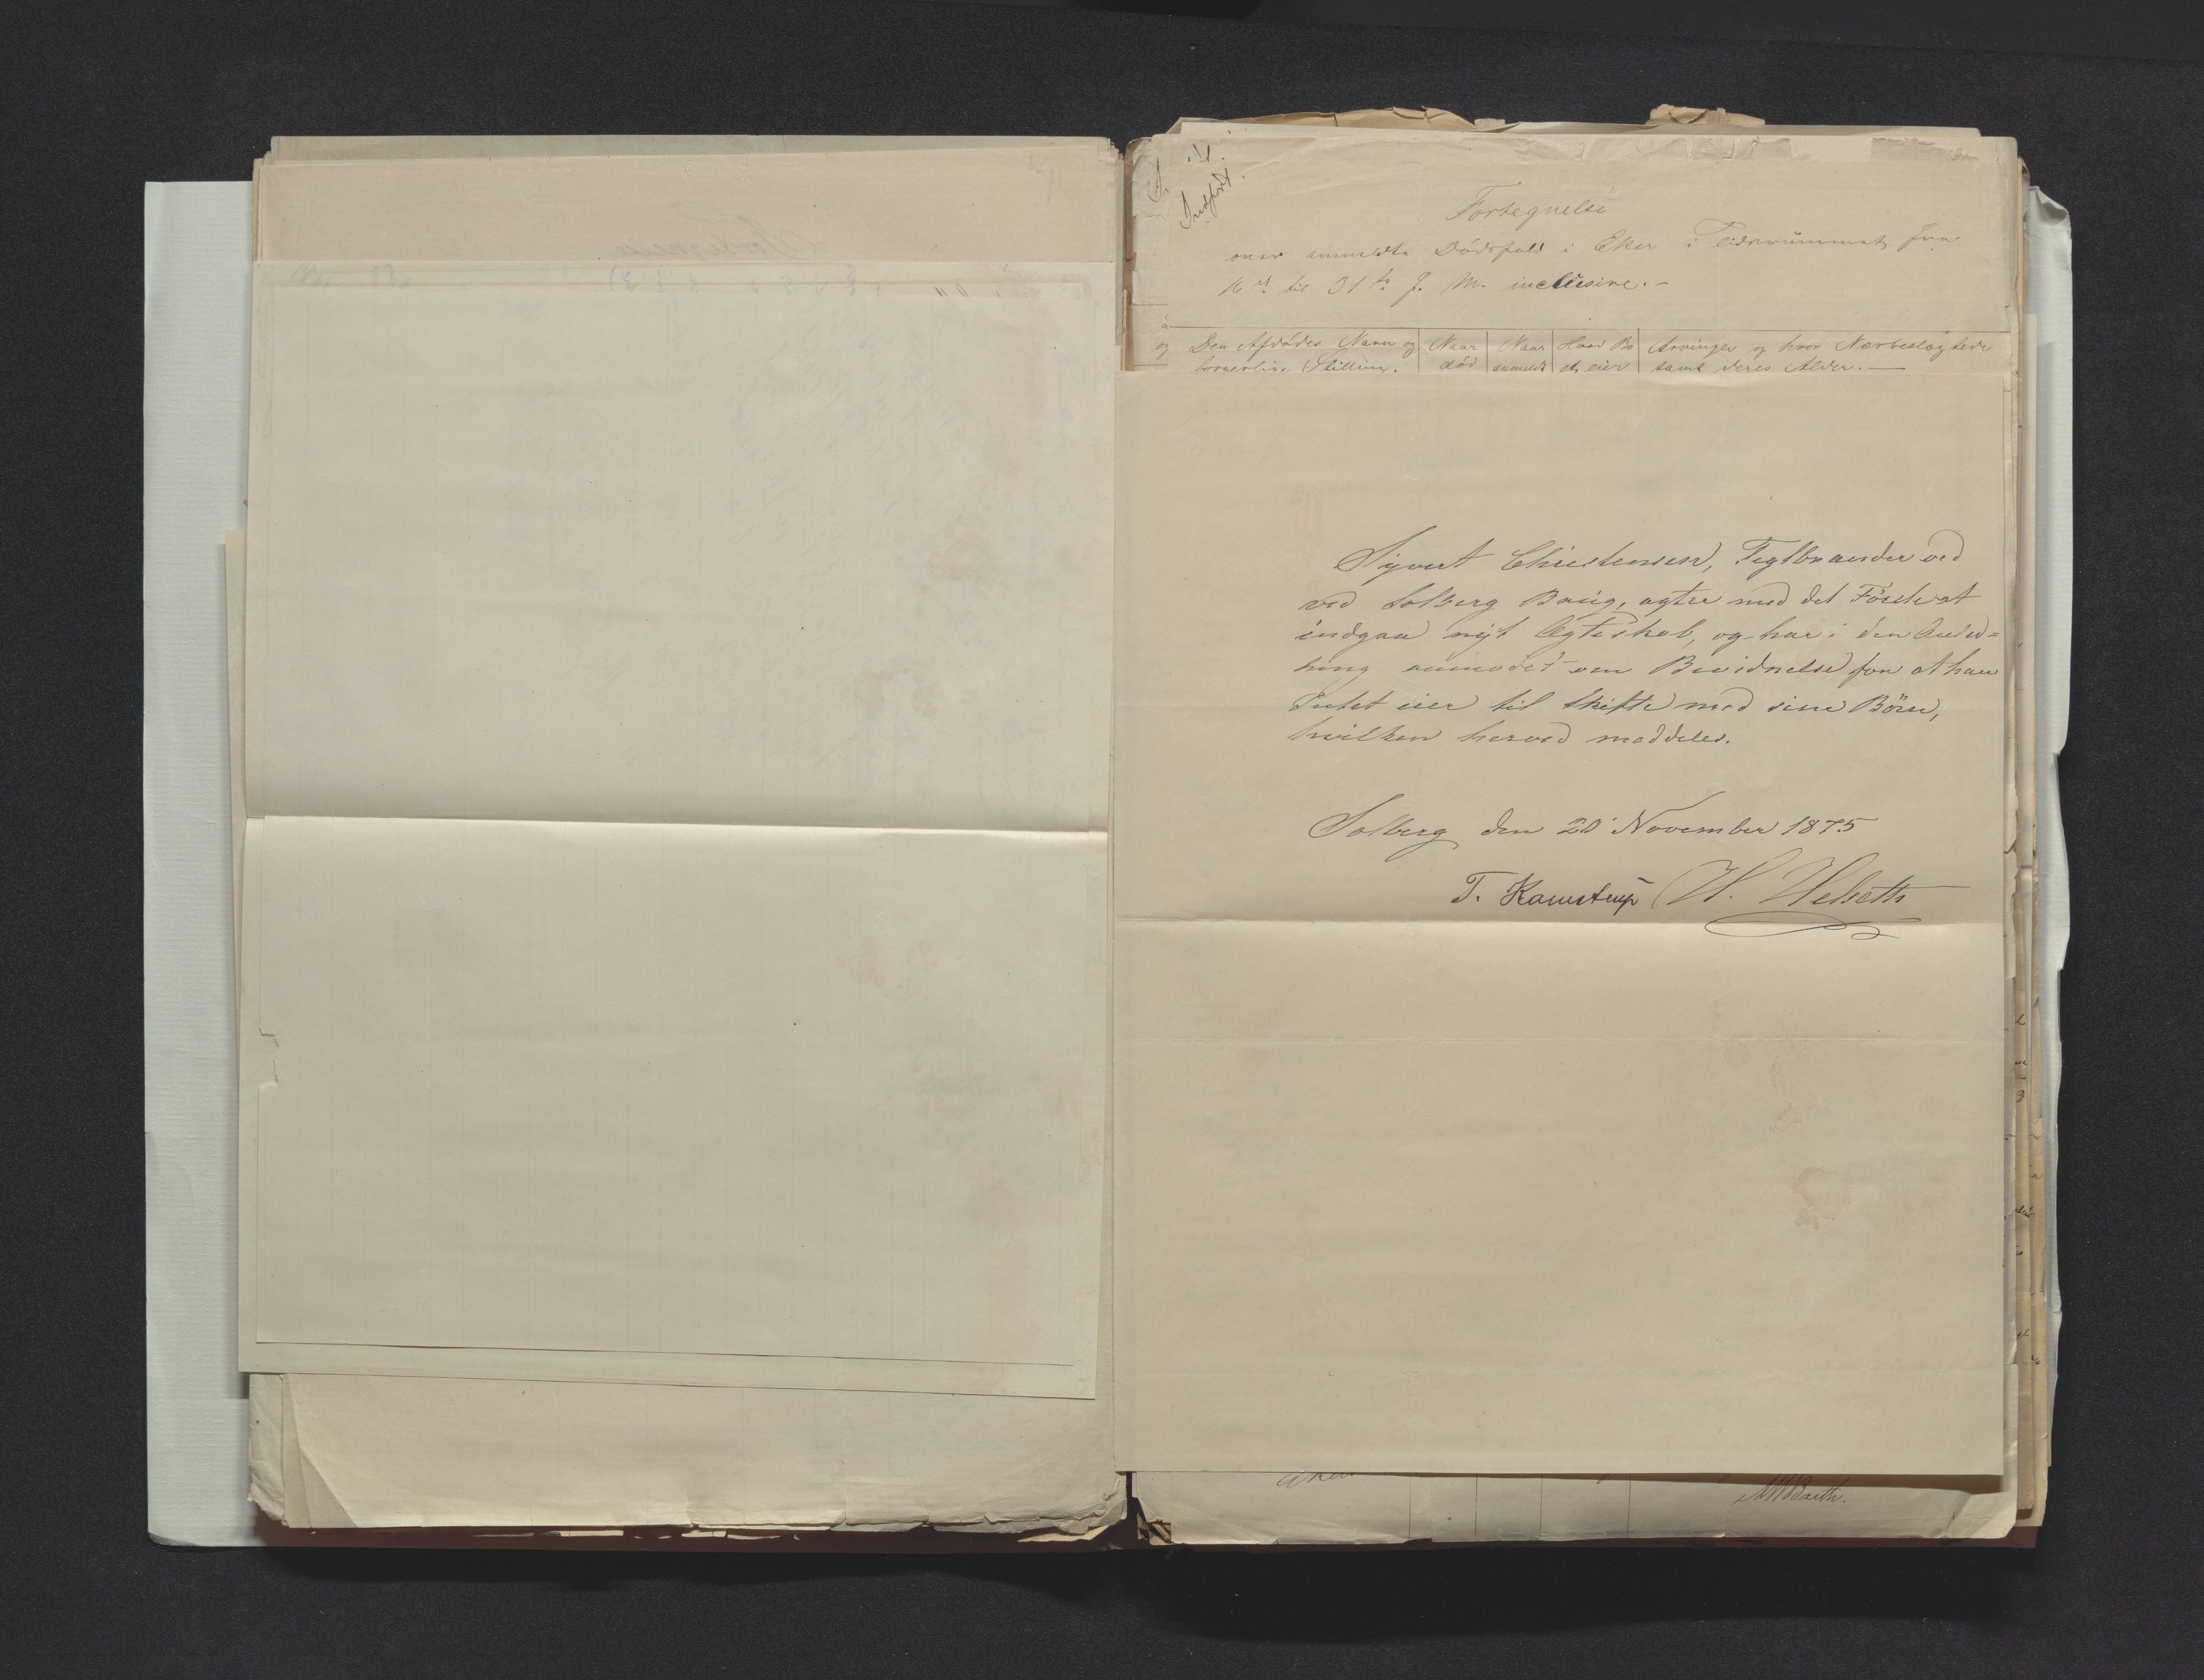 Indført.
Fortegnelse
over anmeldte Dødsfald i Eker i Tidsrummet fra
16de til 31te f. M. inclusive.-
Den Afdødes Navn og
borgerlige Stilling.
Naar
død
Naar
anmeldt
Hvad Bo
et eier
Arvinger og hvor Nærbeslægtede
samt deres Alder.-
Syvert Christensen, Teglbrænder ved
ved Solberg Brüg, agter med det Förste at
indgaa nyt Ægteskab, og har i den Anled=
ning anmodet om Bevidnelse for at han
Intet eier til Skifte med sine Börn,
hvilken herved meddeles.
Solberg den 20 November 1875
T. Kamstrup W. Helseth
Barth.